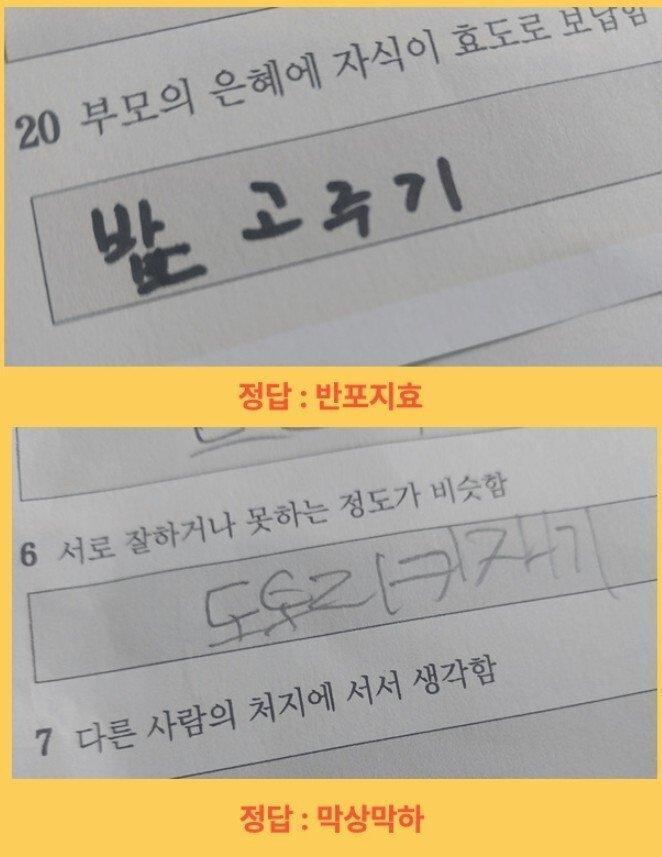 20 부모의 은혜에 자식이 효도로 보답함
발 고주기
정답 : 반포지효
6 서로 잘하거나 못하는 정도가 비슷함
도토리키재기
7 다른 사람의 처지에 서서 생각함
정답 : 막상막하